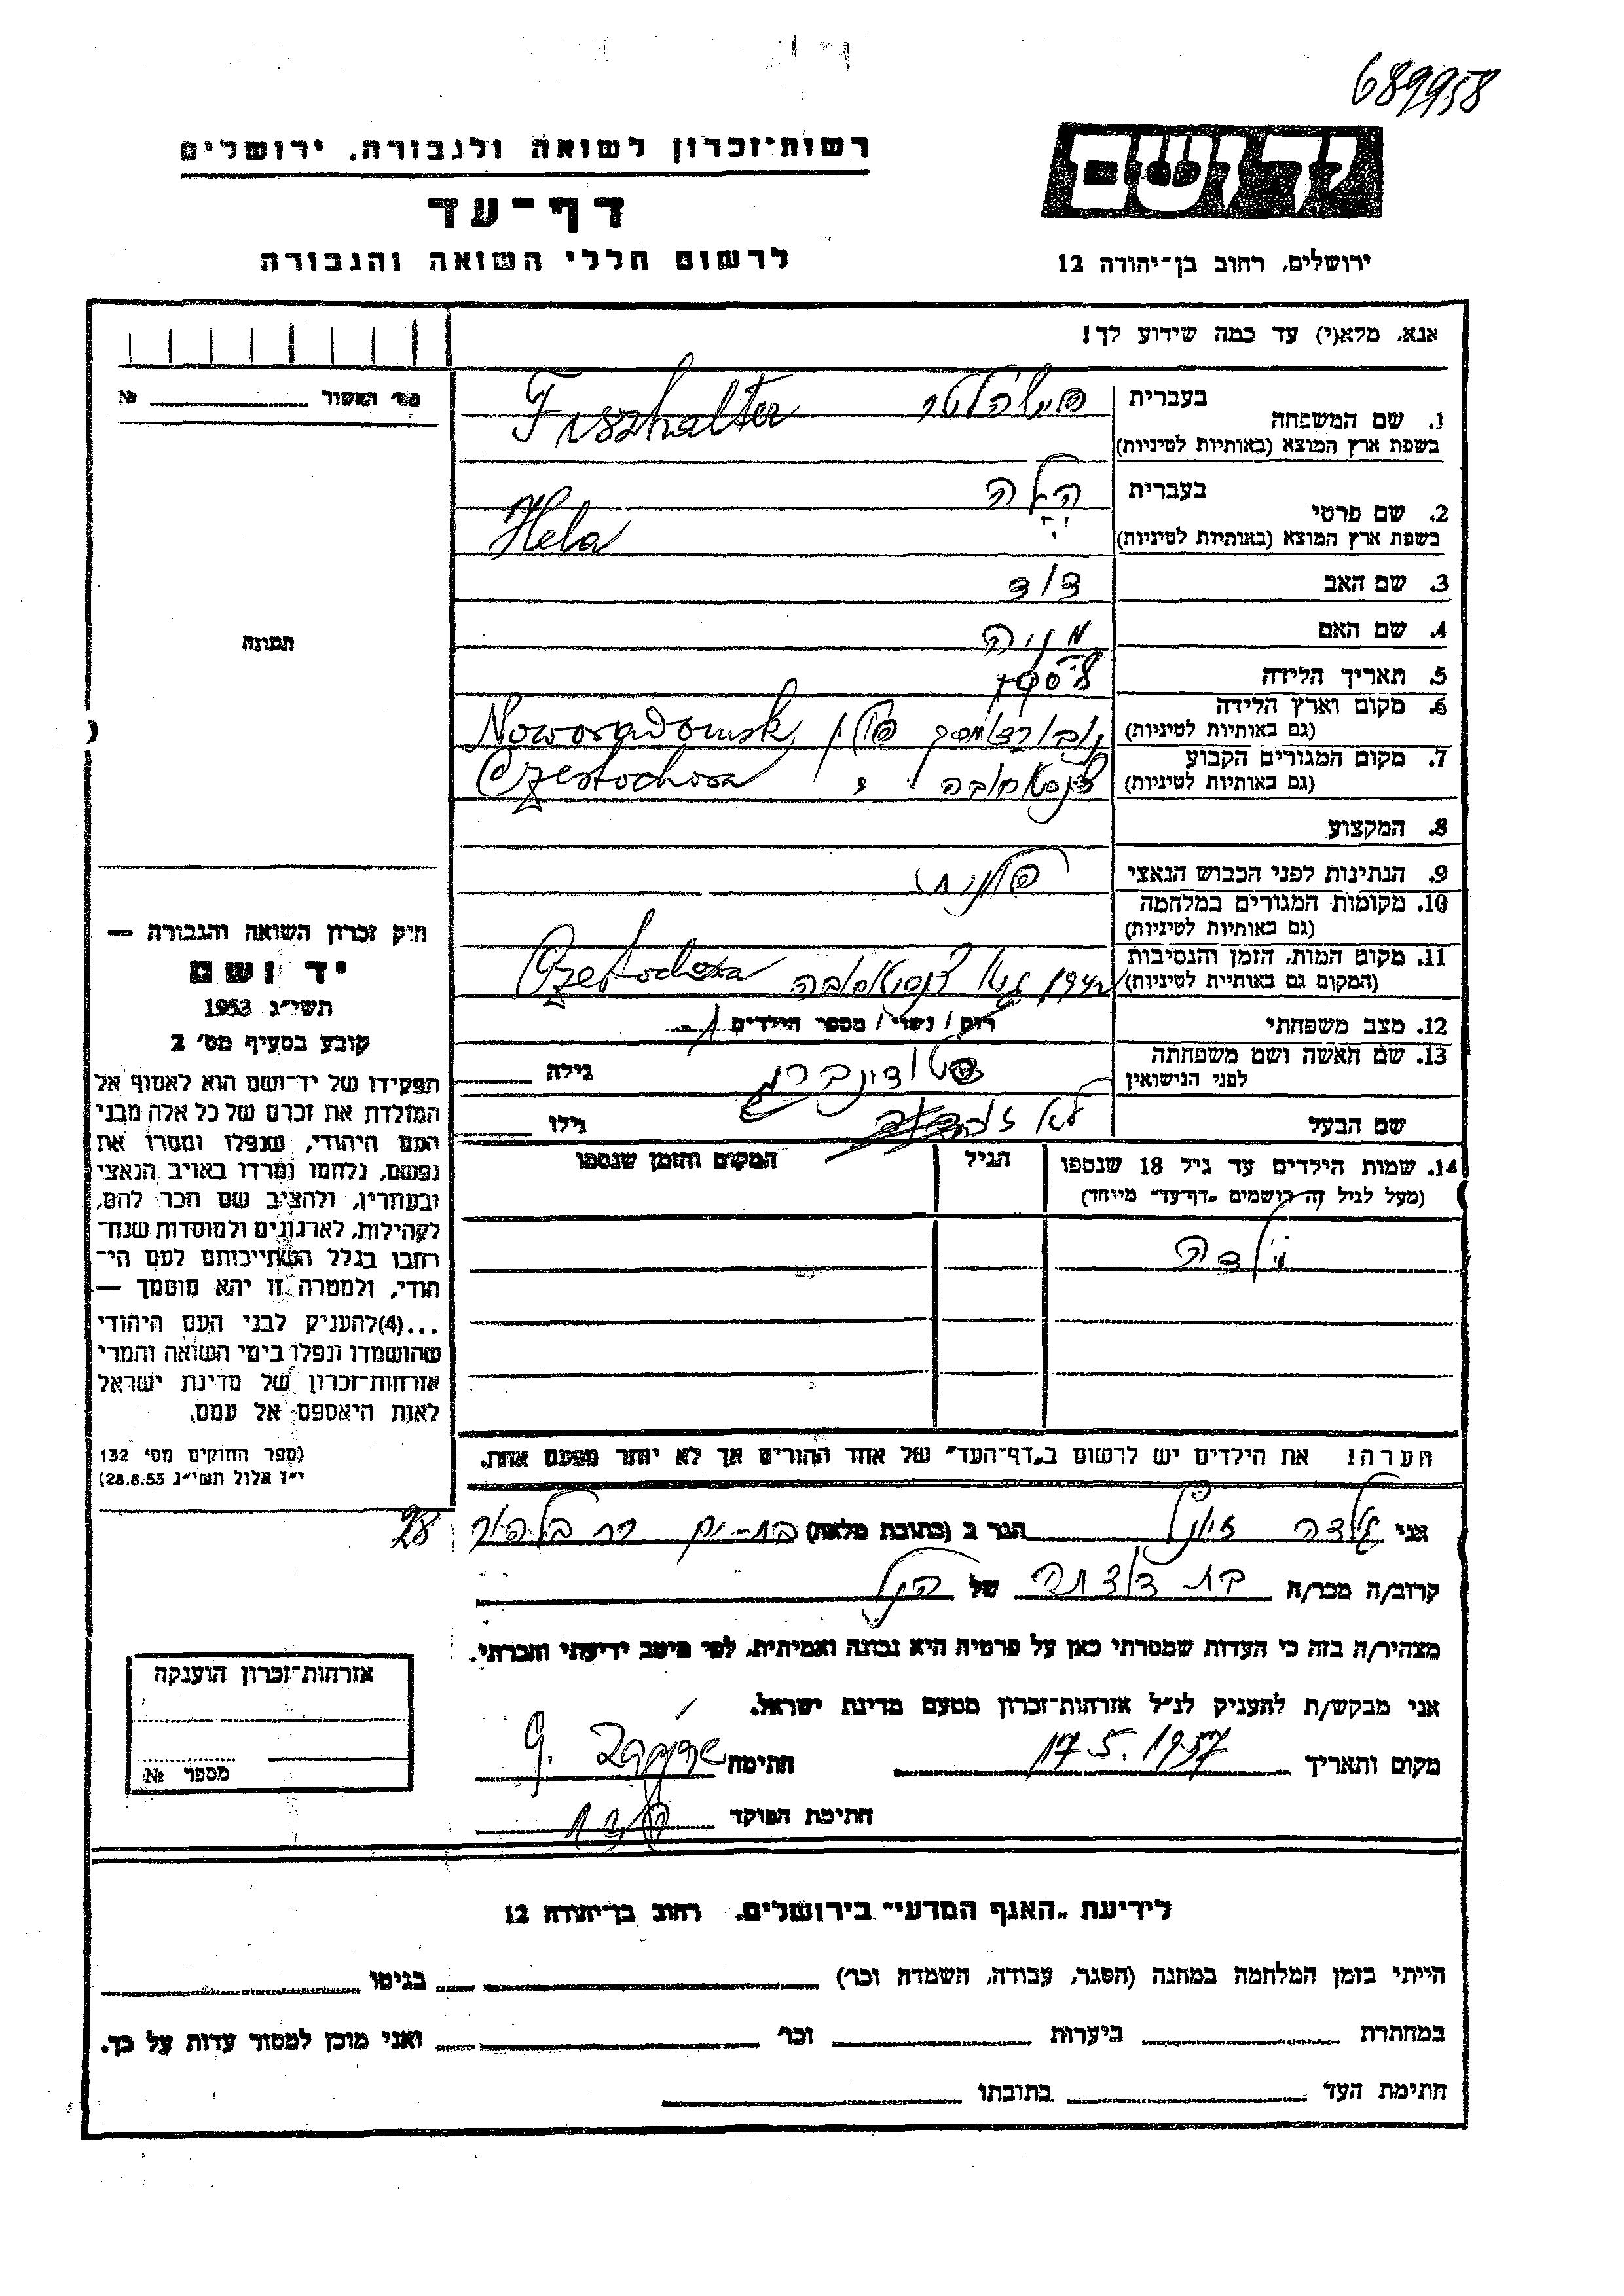 689958
רשות־זכרון לשואה ולגבורה, ירושלים
דף־עד
לרשום חללי השואה והגבורה
יד ושם
ירושלים, רחוב בן־יהודה 12
אנא, מלא(י) עד כמה שידוע לך!
מס' האשור № 
1. שם המשפחה בעברית
בשפת ארץ המוצא (באותיות לטיניות)
פישהלטר Fiszhalter
2. שם פרטי בעברית
בשפת ארץ המוצא (באותיות לטיניות)
הלה Hela
3. שם האב דוד
4. שם האם מניה
תמונה
5. תאריך הלידה
6. מקום וארץ הלידה
(גם באותיות לטיניות)
פולין, Noworadomsk
7. מקום המגורים הקבוע
(גם באותיות לטיניות)
צ'נסטוחובה Czestochowa
8. המקצוע
9. הנתינות לפני הכבוש הנאצי פולנית
10. מקומות המגורים במלחמה
(גם באותיות לטיניות)
11. מקום המות, הזמן והנסיבות
(המקום גם באותיית לטיניות)
1942 גיטו צ'נסטוחובה Czestochowa
12. מצב משפחתי רוק / נשוי / מספר הילדים 1
13. שם האשה ושם משפחתה
לפני הנישואין
גילה
שם הבעל
גילו
14. שמות הילדים עד גיל 18 שנספו
(מעל לגיל זה רושמים „דף־עד" מיוחד)
הגיל
המקום והזמן שנספו
ילדה
חוק זכרון השואה והגבורה —
יד ושם
תשי"ג 1953
קובע בסעיף מס' 2
תפקידו של יד־ושם הוא לאסוף אל
המולדת את זכרם של כל אלה מבני
העם היהודי, שנפלו ומסרו את
נפשם, נלחמו ומרדו באויב הנאצי
ובעוזריו, ולהציב שם וזכר להם,
לקהילות, לארגונים ולמוסדות שנח־
רבו בגלל השתייכותם לעם הי־
הודי, ולמטרה זו יהא מוסמך —
...(4)להעניק לבני העם היהודי
שהושמדו ונפלו בימי השואה והמרי
אזרחות־זכרון של מדינת ישראל
לאות היאספם אל עמם.
(ספר החוקים מס' 132
י"ז אלול תשי"ג 28.8.53)
הערה! את הילדים יש לרשום ב„דף־העד" של אחד ההורים אך לא יותר מפעם אחת.
אני הגר ב (כתובת מלאה) בת-ים 28
קרוב/ה מכר/ה בת דודתה של הנ"ל
מצהיר/ה בזה כי העדות שמסרתי כאן על פרטיה היא נכונה ואמיתית, לפי מיטב ידיעתי והכרתי.
אני מבקש/ת להעניק לנ"ל אזרחות־זכרון מטעם מדינת ישראל.
מקום ותאריך 17.5.1957 חתימת
חתימת הפוקד
אזרחות־זכרון הוענקה
מספר №
לידיעת „האגף המדעי" בירושלים, רחוב בן־יהודה 12
הייתי בזמן המלחמה במחנה (הסגר, עבודה, השמדה וכו') בגיטו
במחתרת ביערות וכו' ואני מוכן למסור עדות על כך.
חתימת העד כתובתו